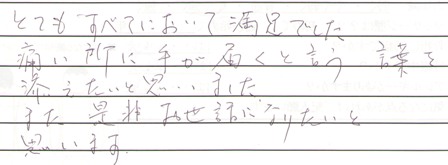 とても すべてにおいて満足でした
痛い所に手が届くと言う 言葉を
添えたいと思いました
また 是非お世話になりたいと
思います.